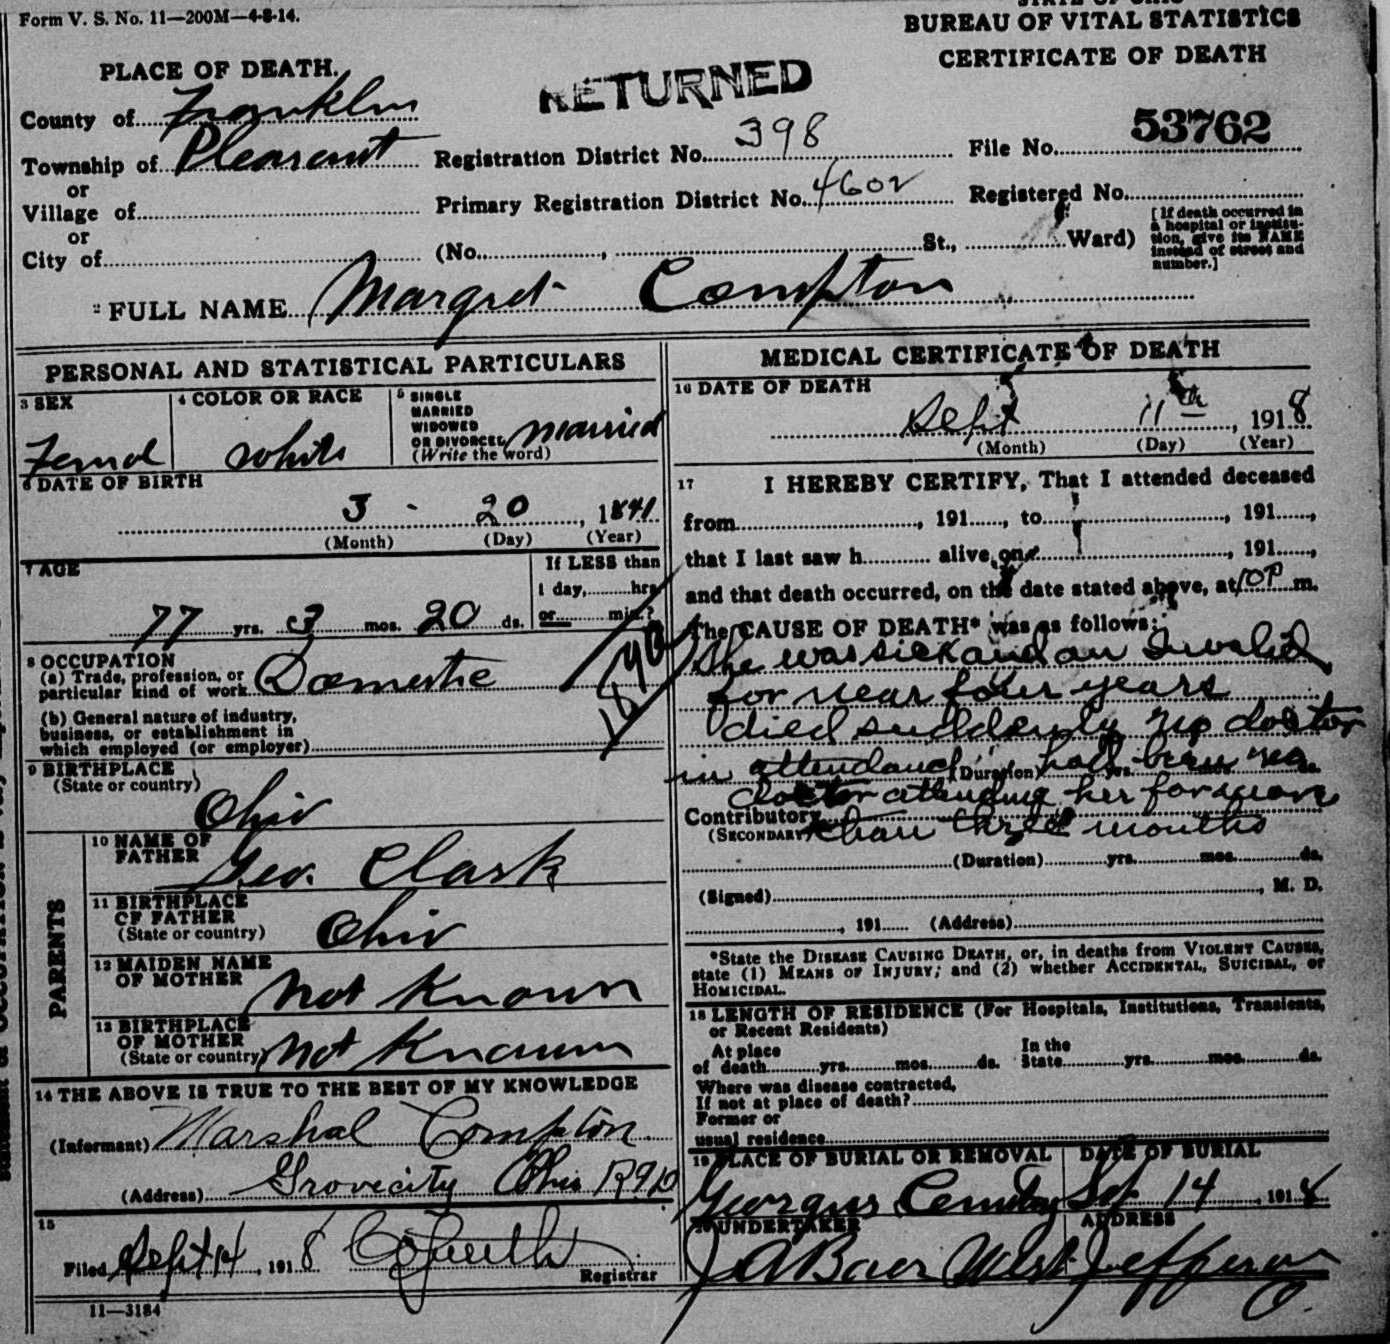 Form V. S. No. 11—200M—4-8-14.
STATE OF OHIO
BUREAU OF VITAL STATISTICS
CERTIFICATE OF DEATH
PLACE OF DEATH.
RETURNED
County of Franklin
Township of Pleasant Registration District No. 398 File No. 53762
or
Village of Primary Registration District No. 4602 Registered No.
or
City of (No. , St., Ward)
[If death occurred in
a hospital or institu-
tion, give its NAME
instead of street and
number.]
2 FULL NAME Margret Compton
PERSONAL AND STATISTICAL PARTICULARS
3 SEX
Femal
4 COLOR OR RACE
White
5 SINGLE
MARRIED
WIDOWED
OR DIVORCED Married
(Write the word)
6 DATE OF BIRTH
3 - 20 , 1841
(Month) (Day) (Year)
7 AGE
If LESS than
1 day, hrs.
77 yrs. 3 mos. 20 ds. or min.?
8 OCCUPATION
(a) Trade, profession, or
particular kind of work Domestic
(b) General nature of industry,
business, or establishment in
which employed (or employer)
9 BIRTHPLACE
(State or country)
Ohio
PARENTS
10 NAME OF
FATHER
Geo. Clark
11 BIRTHPLACE
OF FATHER
(State or country) Ohio
12 MAIDEN NAME
OF MOTHER
Not Known
13 BIRTHPLACE
OF MOTHER
(State or country) Not Known
14 THE ABOVE IS TRUE TO THE BEST OF MY KNOWLEDGE
(Informant) Marshal Compton
(Address) Grovecity Ohio
15
Filed Sept 14, 1918
Registrar
11—3184
MEDICAL CERTIFICATE OF DEATH
16 DATE OF DEATH
Sept 11th, 1918
(Month) (Day) (Year)
17 I HEREBY CERTIFY, That I attended deceased
from , 191 , to , 191 ,
that I last saw h alive on , 191 ,
and that death occurred, on the date stated above, at 10P m.
The CAUSE OF DEATH* was as follows:
She was sick and an Invalid
for near four years
died suddenly no doctor
in attendance had been no
(Duration) yrs. mos. ds.
doctor attending her for more
Contributory
(SECONDARY) than three months
(Duration) yrs. mos. ds.
(Signed) , M. D.
, 191 (Address)
*State the DISEASE CAUSING DEATH, or, in deaths from VIOLENT CAUSES,
state (1) MEANS OF INJURY; and (2) whether ACCIDENTAL, SUICIDAL, or
HOMICIDAL.
18 LENGTH OF RESIDENCE (For Hospitals, Institutions, Transients,
or Recent Residents)
At place In the
of death yrs. mos. ds. State yrs. mos. ds.
Where was disease contracted,
If not at place of death?
Former or
usual residence
19 PLACE OF BURIAL OR REMOVAL
DATE OF BURIAL
Sept 14, 1918
20 UNDERTAKER
ADDRESS
J A Baer West Jefferson
O.